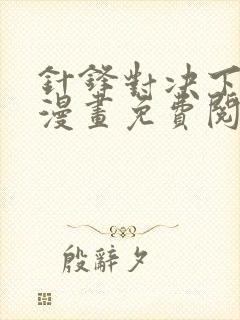 針鋒對决下
漫畫免費閱
殷辭夕